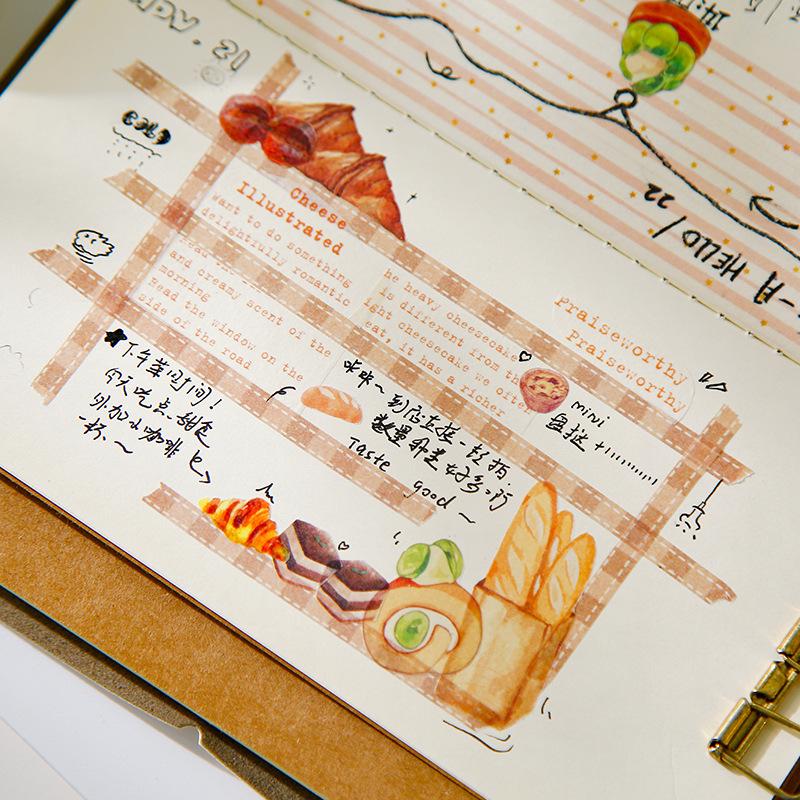 NOV. 21
Cheese
Illustrated
want to do something
delightfully romantic
and creamy scent of the
morning
Read the window on the
side of the road
he heavy cheesecake
is different from th
ight cheesecake we often
eat, it has a richer
Praiseworthy
Praiseworthy
下午茶时间!
今天吃点甜食
外加小咖啡
一杯.~
咔咔~到店直接一顿拍.
数量种类好多
Taste good ~
mini
盘挞
A HELLO / 22